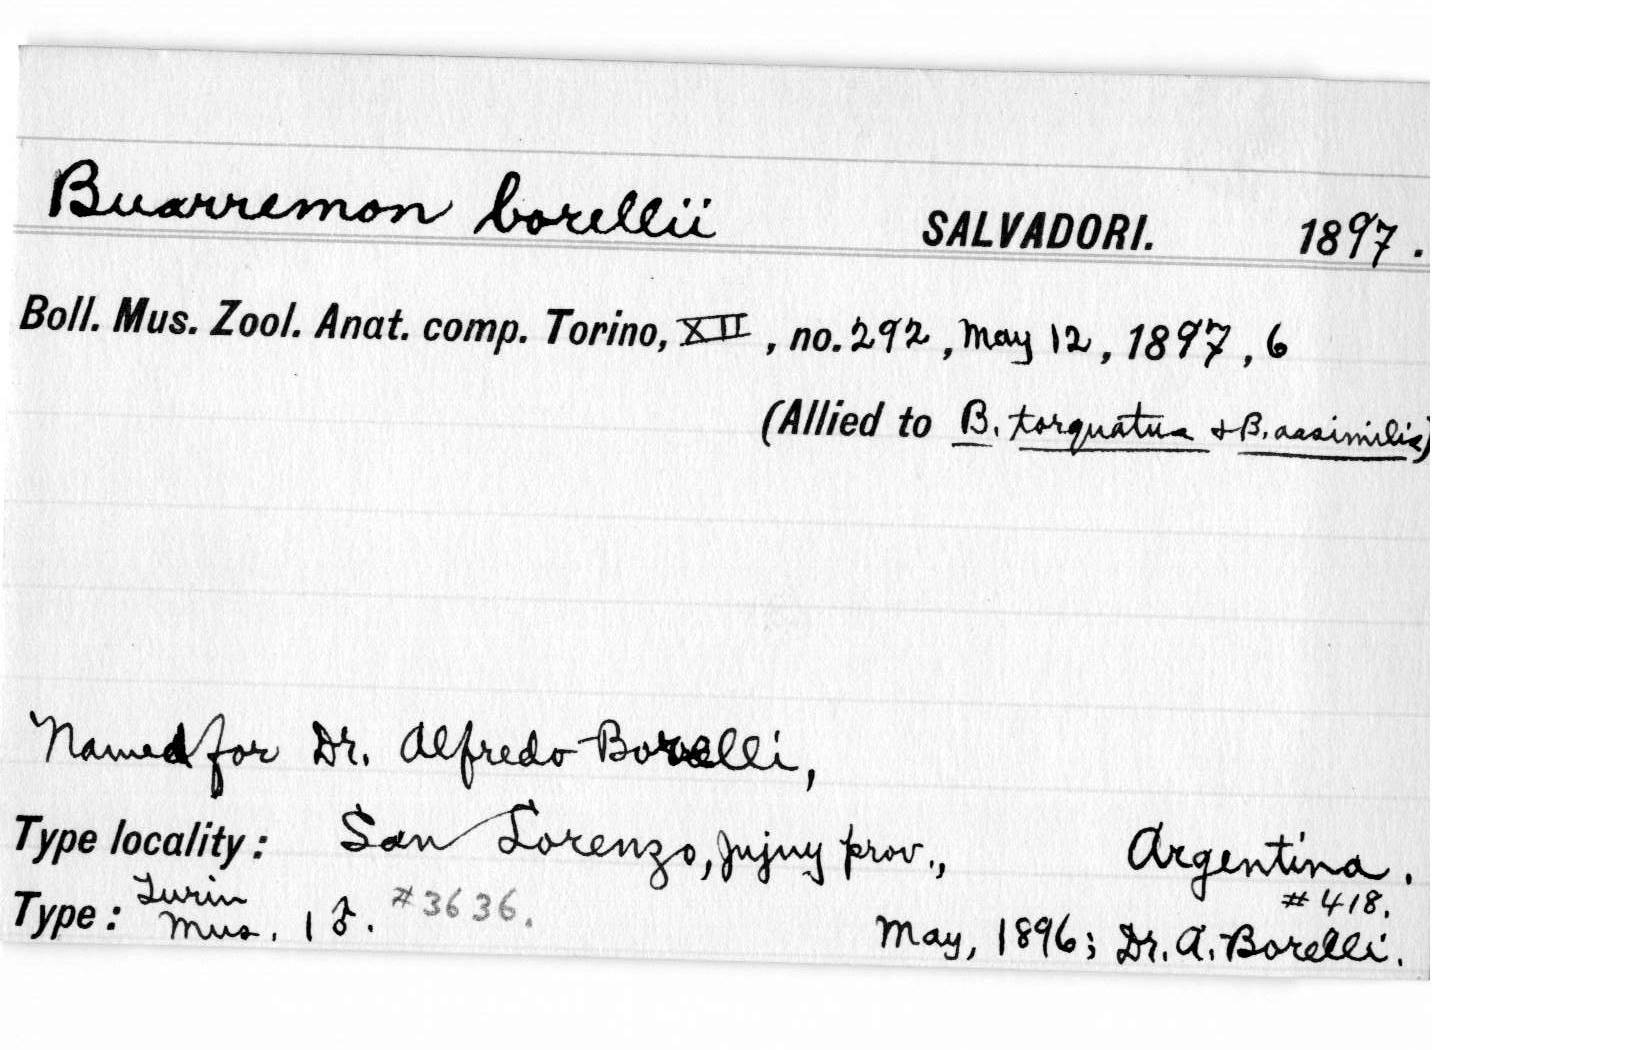 Buarremon borellii SALVADORI. 1897.
Boll. Mus. Zool. Anat. comp. Torino, XII, no. 292, May 12, 1897, 6
(Allied to B. torquatus & B. assimilis)
Named for Dr. Alfredo Borelli,
Type locality: San Lorenzo, Jujuy prov., Argentina.
Type: Turin Mus. 1 ♂. #3636. #418.
May, 1896; Dr. A. Borelli.